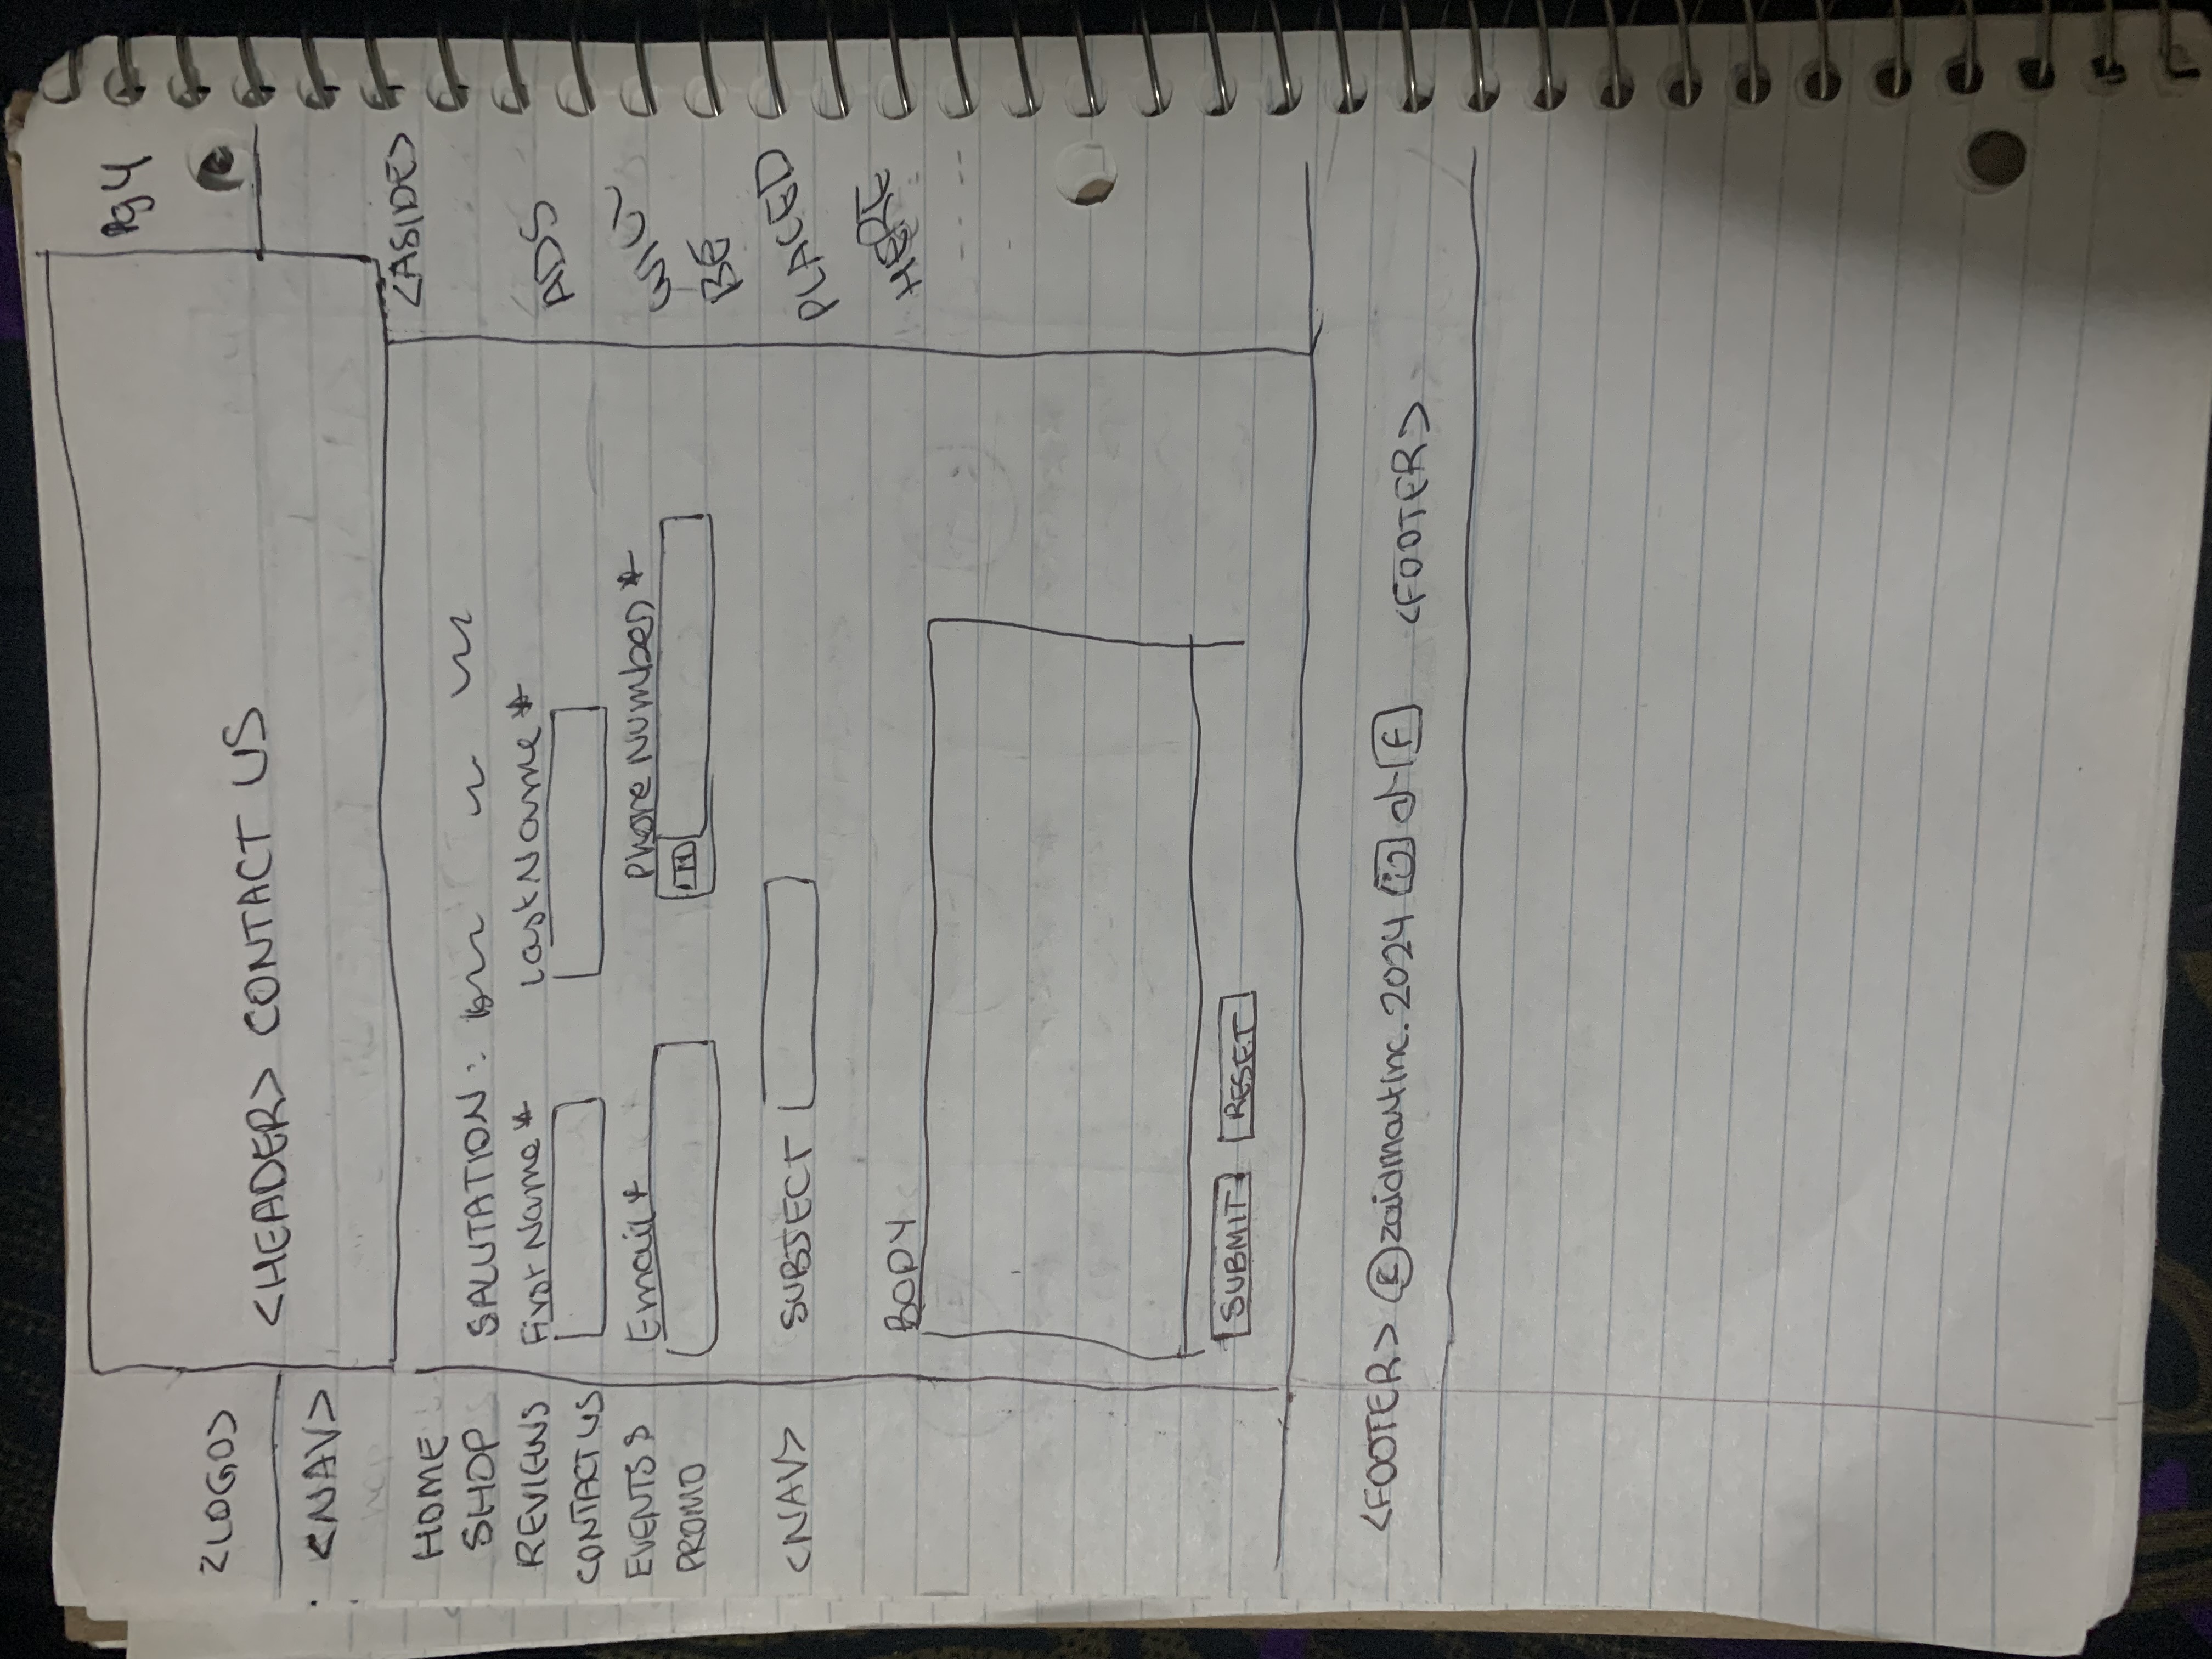 Pg 4
<LOGO>
<HEADER> CONTACT US
<NAV>
HOME
SHOP
REVIEWS
CONTACT US
EVENTS &
PROMO
<NAV>
SALUTATION:
First Name * Last Name *
Email * Phone Number *
SUBJECT
BODY
SUBMIT RESET
<ASIDE>
ADS
WILL
BE
PLACED
HERE
<FOOTER> zaidmart inc. 2024 F <FOOTER>